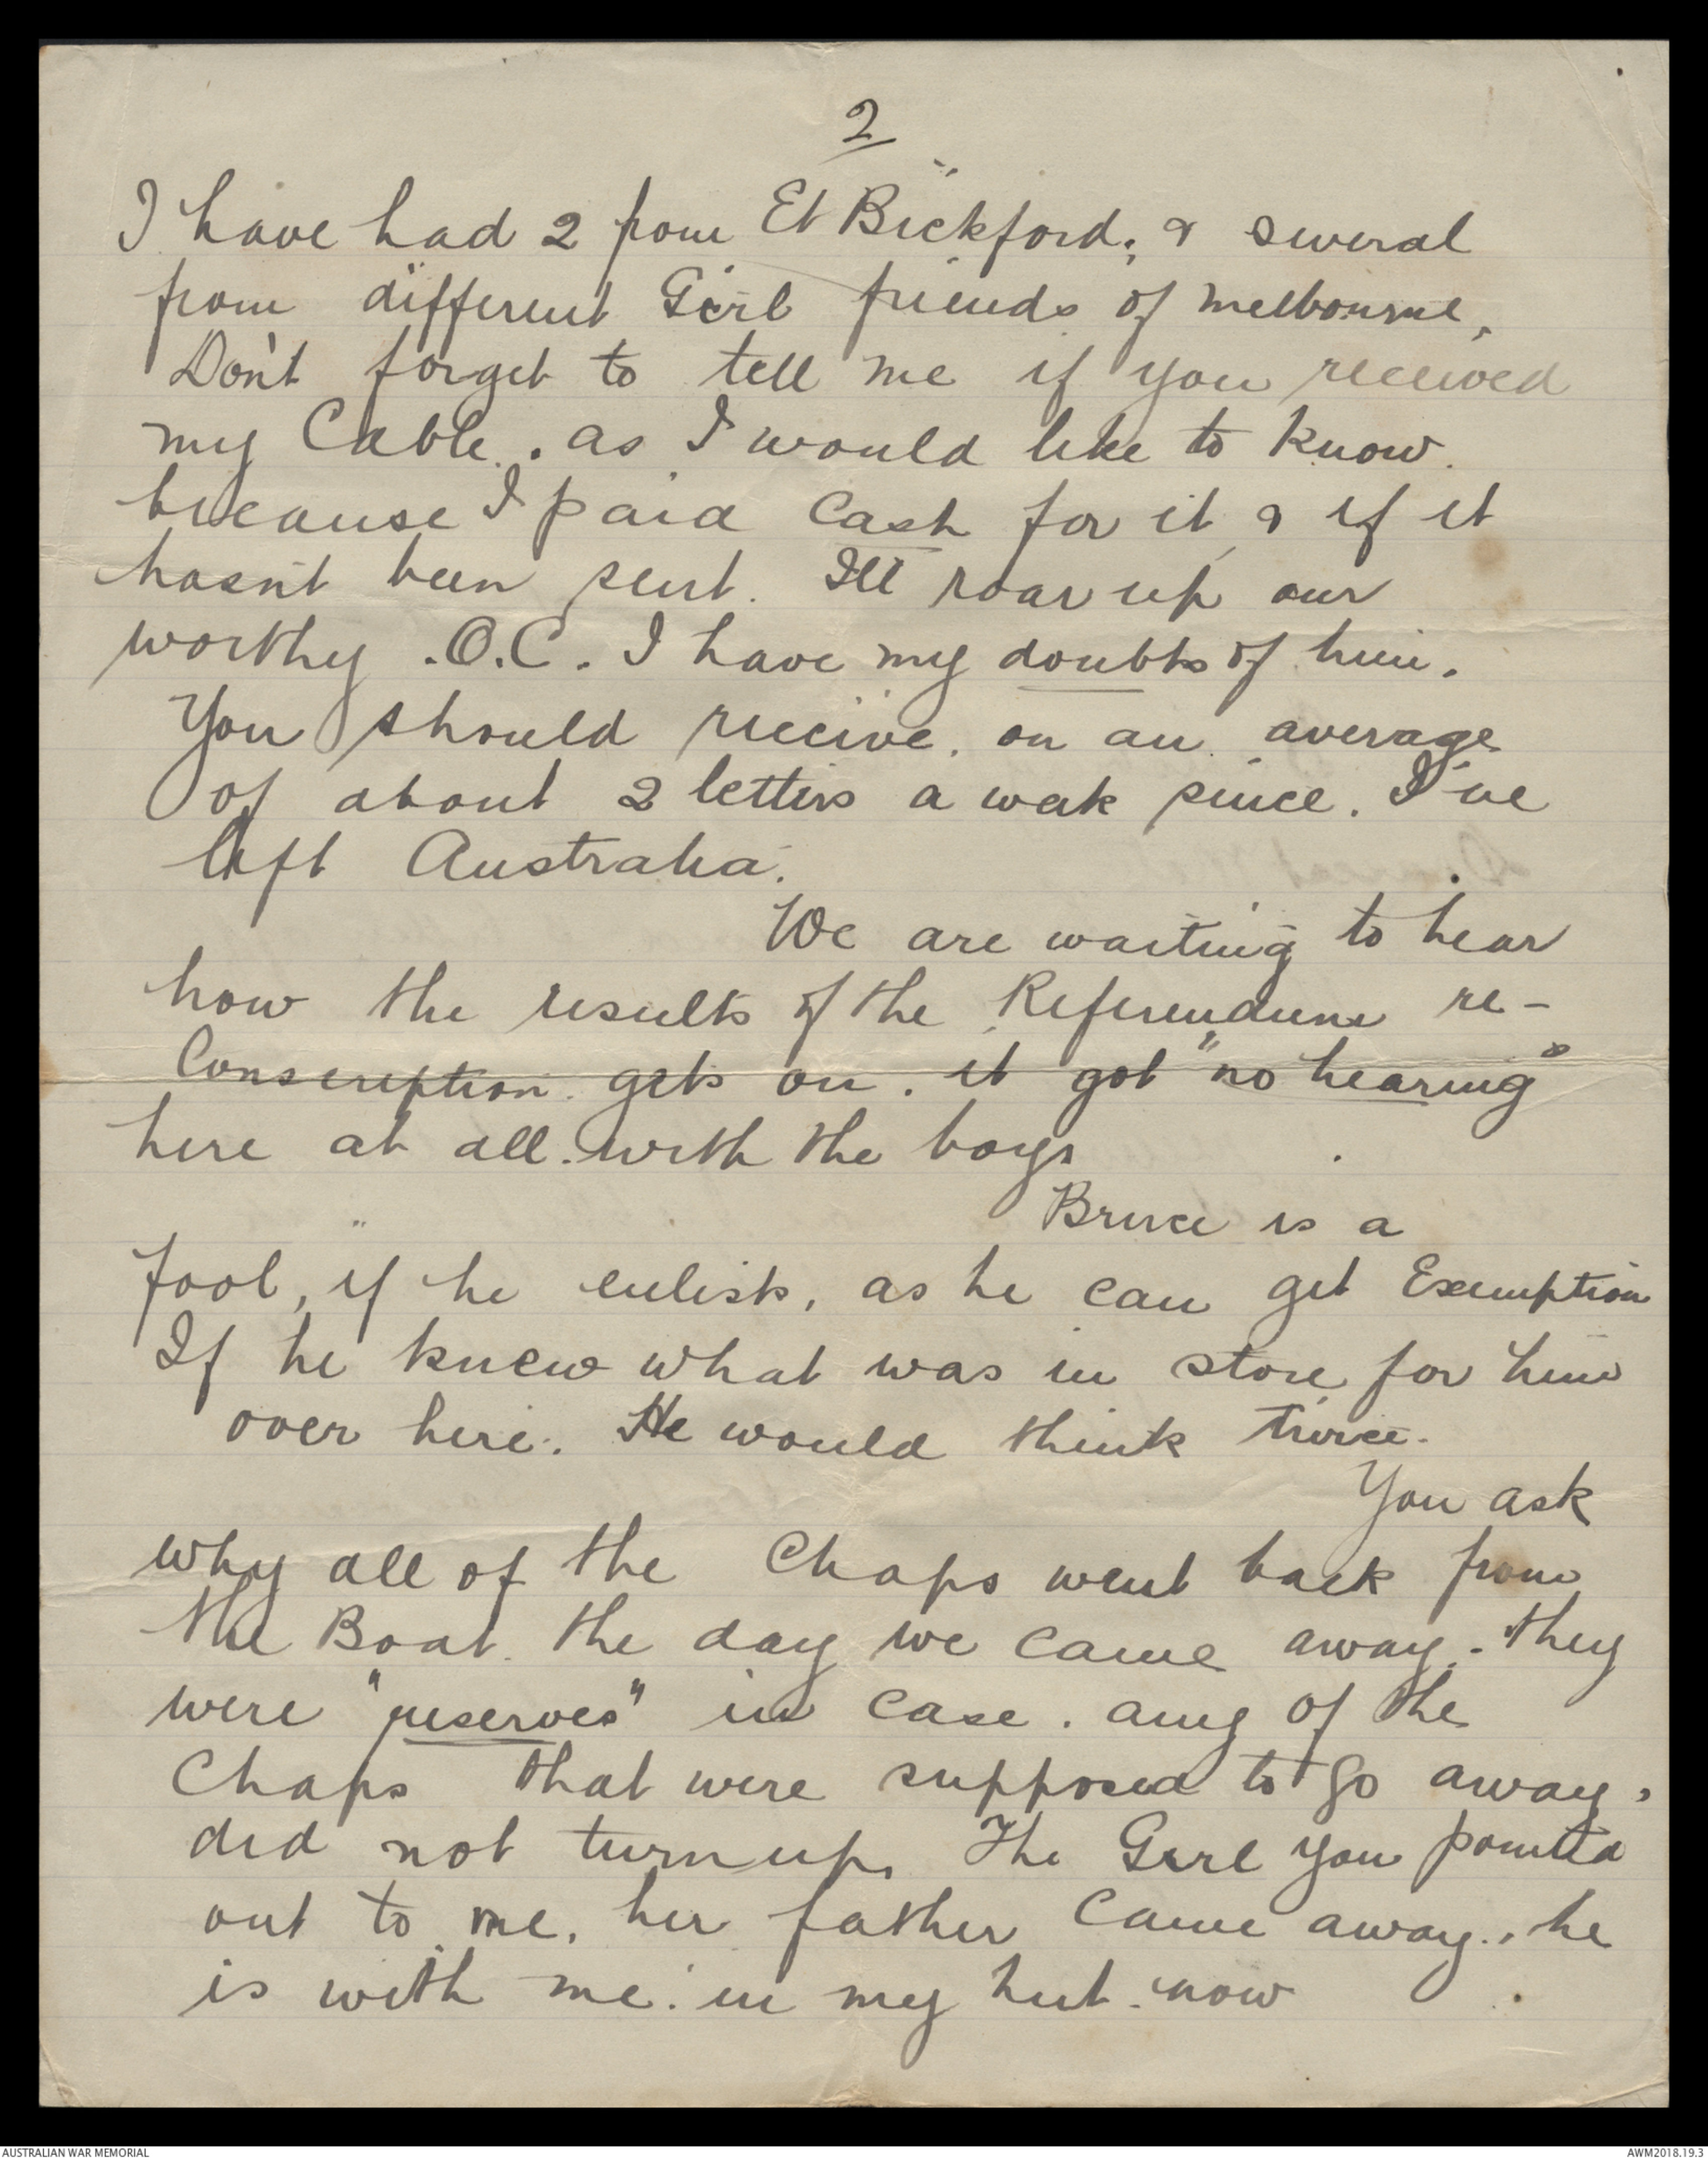 2
I have had 2 from Et Bickford, & several
from different Girl friends of Melbourne,
Don't forget to tell me if you received
my Cable. as I would like to know.
because I paid Cash for it & if it
hasn't been sent. I'll roar up our
worthy .O.C. I have my doubts of him.
You should receive. on an average
of about 2 letters a week since. I've
left Australia.
We are waiting to hear
how the results of the Referendum re-
Conscription gets on. it got "no hearing"
here at all. with the boys
Bruce is a
fool, if he enlists, as he can get Exemption
If he knew what was in store for him
over here. He would think twice.
You ask
why all of the Chaps went back from
the Boat. the day we came away. they
were "reserves" in case. any of the
Chaps that were supposed to go away,
did not turn up. The Girl you pointed
out to me. her father Came away., he
is with me. in my hut. now
AUSTRALIAN WAR MEMORIAL
AWM2018.19.3